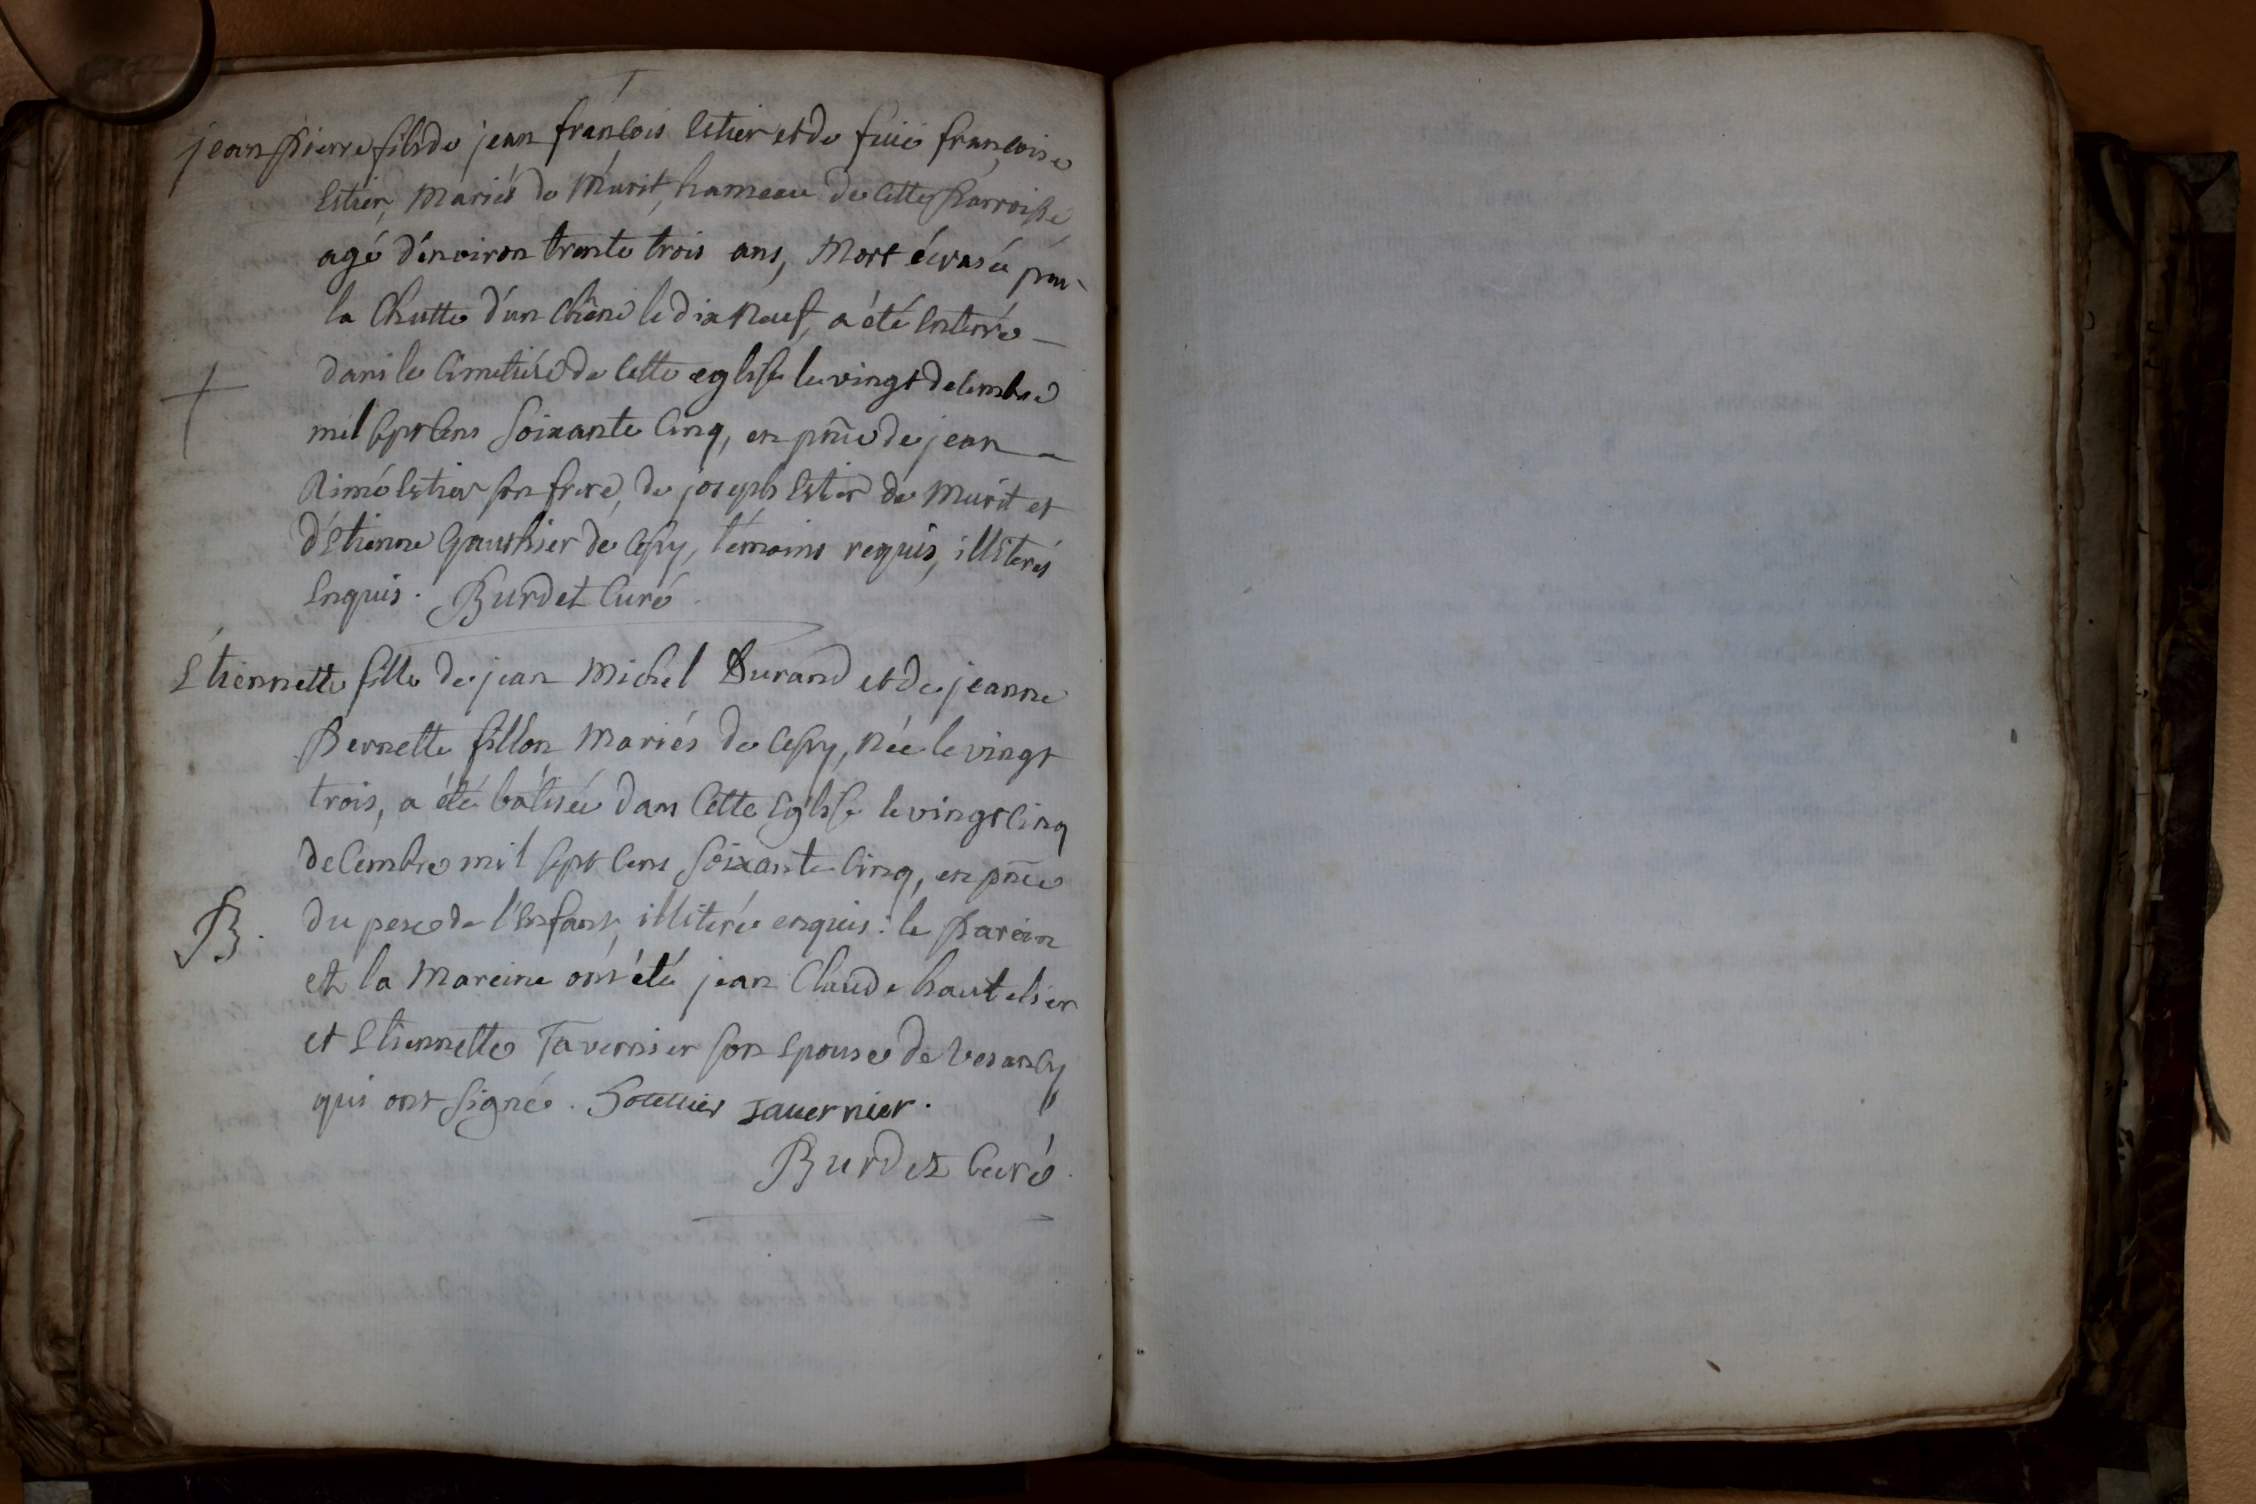 jean pierre fils de jean françois Estier et de feüe françoise
Estier, Mariés de Murit, hameau de Cette parroisse,
agé d'environ trente trois ans, Mort écrasée par
la Chutte d'un Chêne le dix Neuf, a été Enterré
dans le Cimetiére de Cette eglise le vingt decembre
mil sept Cens soixante Cinq, en pñce de jean
Aimé Estier son frere, de joseph Estier de Murit et
d'Etienne Gauthier de Cessy, témoins requis, illiterés
Enquis. Burdet Curé
Etiennette fille de jean Michel Durand et de jeanne
Pernette fillon Mariés de Cessy, née le vingt
trois, a été batisée dans Cette Eglise le vingt Cinq
decembre mil sept Cens soixante Cinq, en pñce
B. du pere de l'Enfant, illiterée enquis: le parein
et la Mareine ont été jean Claude hautelier
et Etiennette Tavernier son Epouse de Vesancy
qui ont signé. Tavernier.
Burdet Curé.